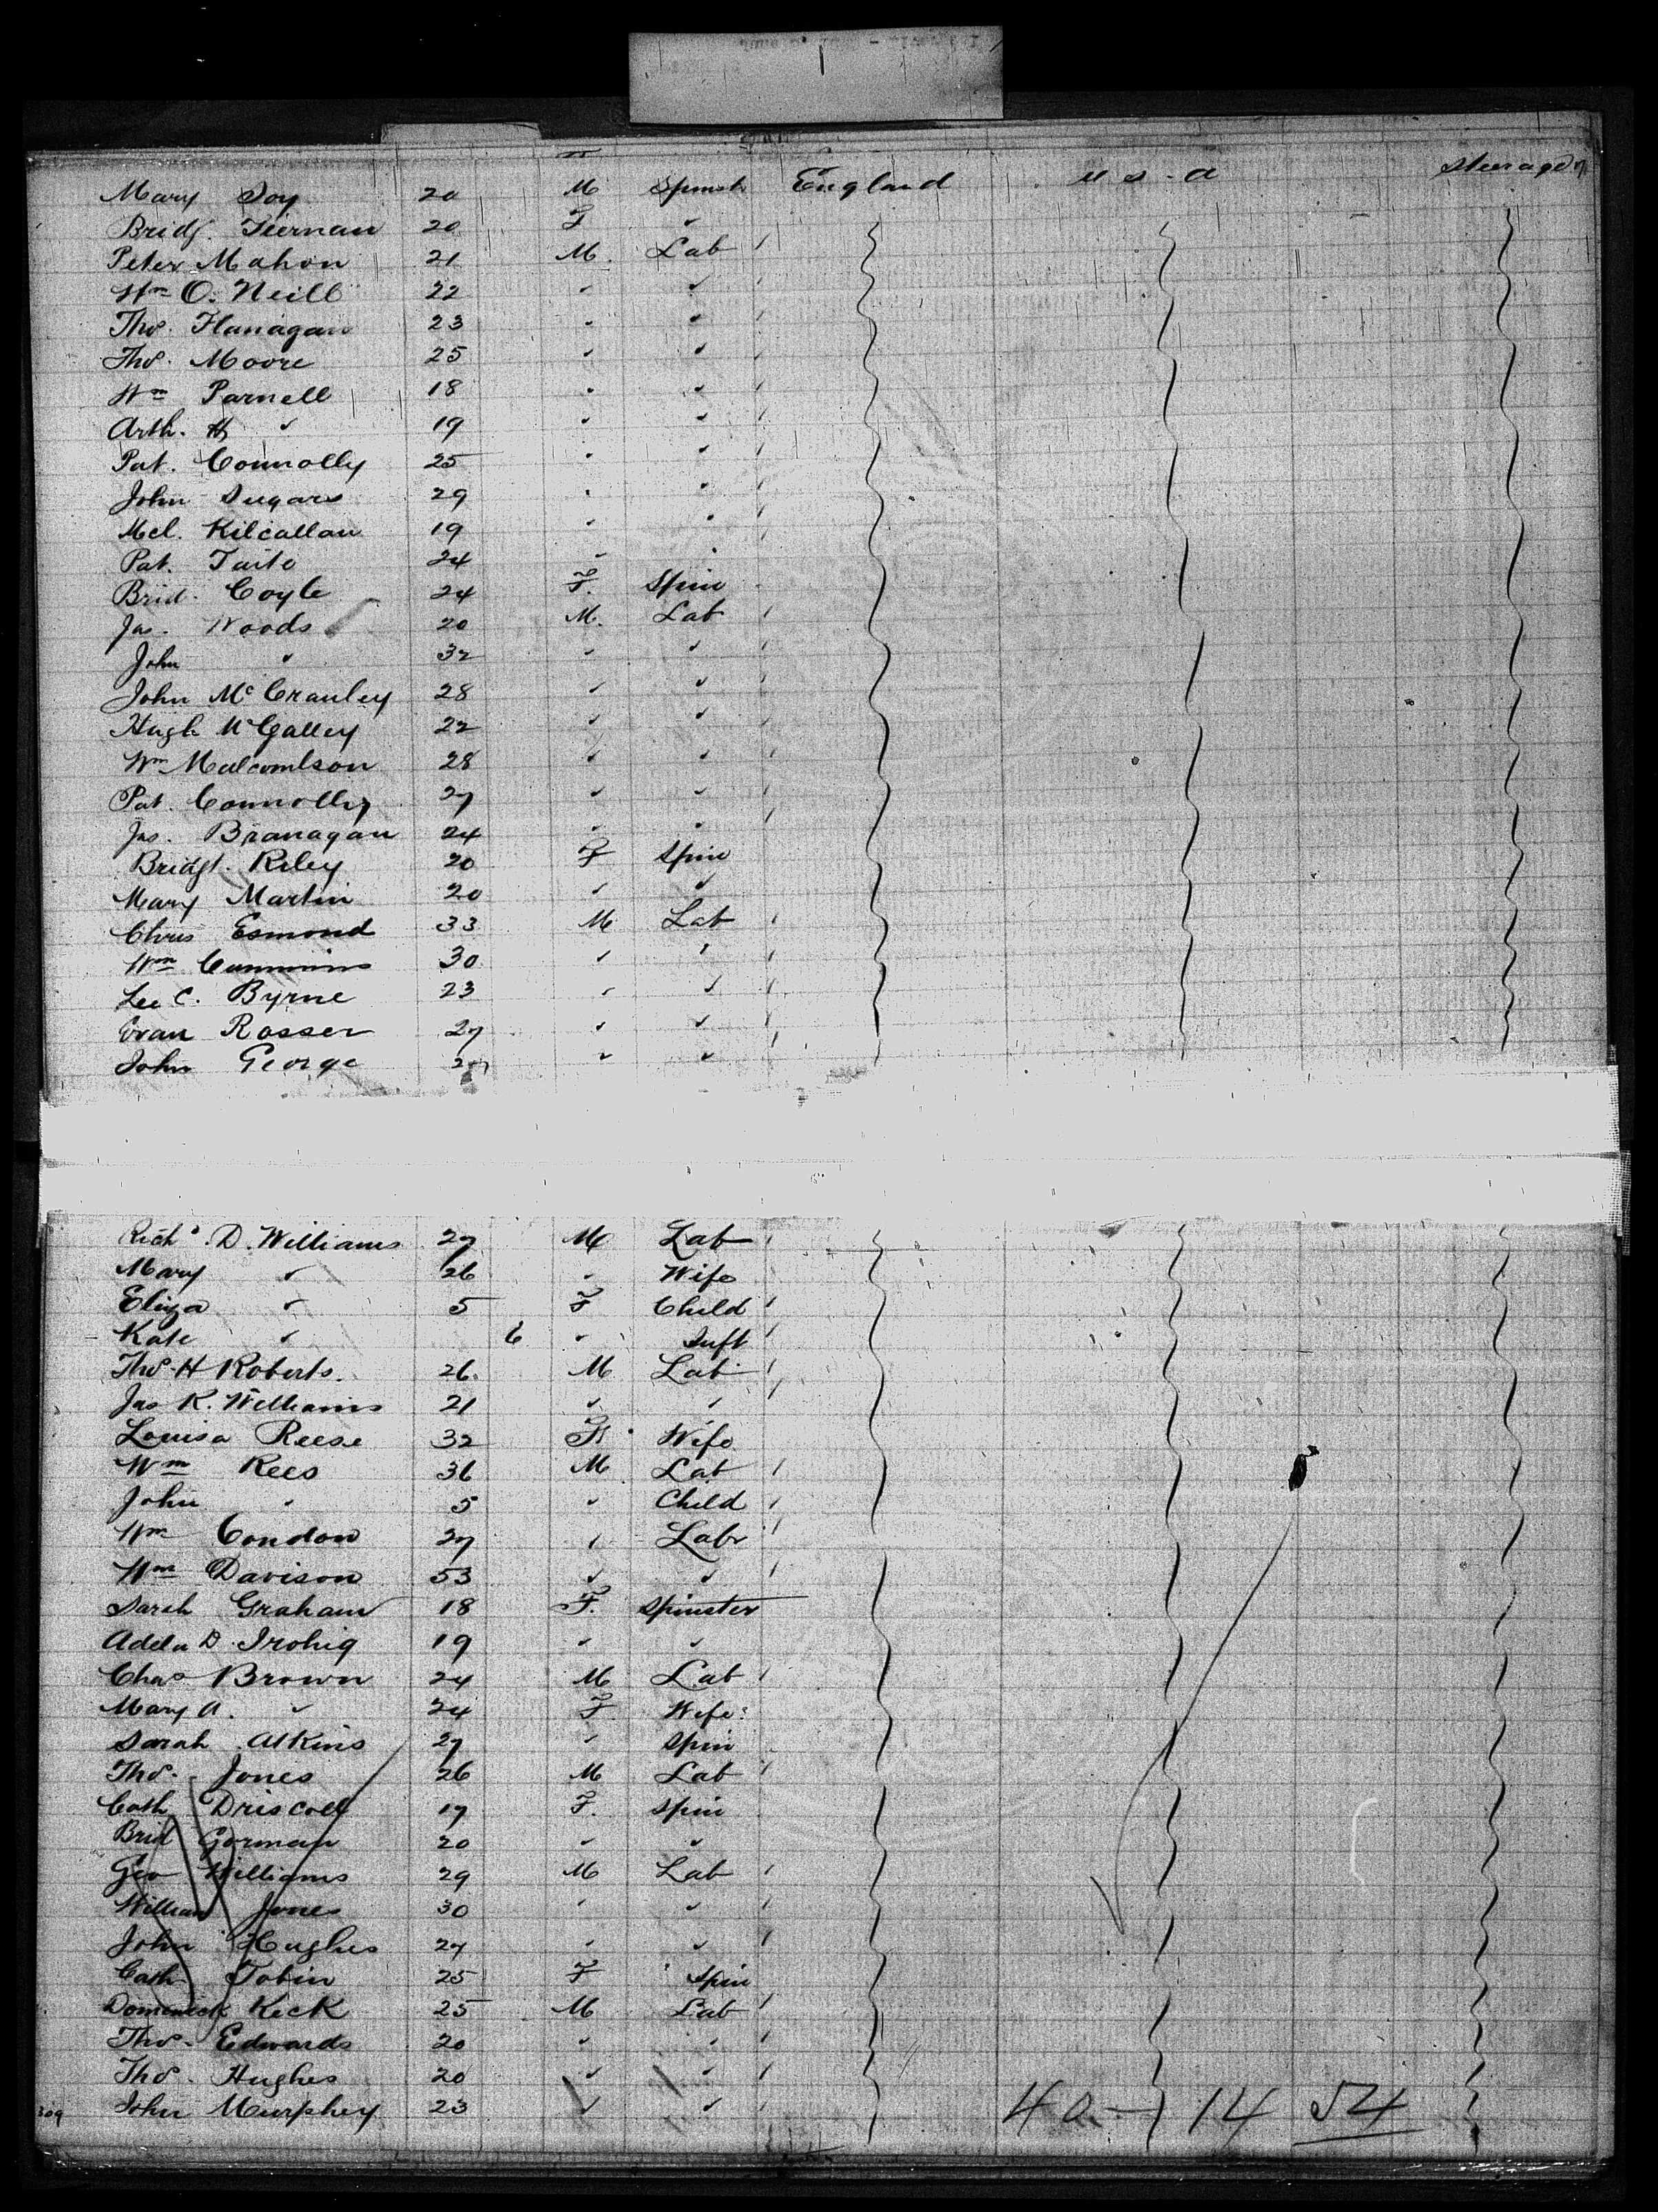 Mary Joy 20 M Spinst England U S - A Steerage
Bridg. Tiernan 20 F "
Peter Mahon 21 M. Lab
Wm O. Neill 22 " "
Thos. Flanagan 23 " "
Thos. Moore 25 " "
Wm Parnell 18 " "
Arth. H " 19 " "
Pat. Connolly 25 " "
John Sugars 29 " "
Mcl. Kilcallan 19 " "
Pat. Tuite 24 " "
Brid. Coyle 24 F. Spin
Jas. Woods 20 M. Lab
John " 32 " "
John McCranley 28 " "
Hugh McGalley 22 " "
Wm Malcomlson 28 " "
Pat. Connolly 27 " "
Jas. Branagan 24 " "
Bridgt. Riley 20 F Spin
Mary Martin 20 " "
Chris Esmond 33 M Lab
Wm Cummins 30 " "
Lee C. Byrne 23 " "
Evan Rosser 27 " "
John George 27 " "
Richd. D. Williams 27 M Lab
Mary " 26 " Wife
Eliza " 5 F Child
Kate " 6 " Inft
Thos. H Roberts. 26. M Lab
Jas K. Williams 21 " "
Louisa Reese 32 F Wife
Wm Rees 36 M Lab
John " 5 " Child
Wm Condon 27 " Labr
Wm Davison 53 " "
Sarah Graham 18 F. Spinster
Adela D. Irohig 19 " "
Chas Brown 24 M Lab
Mary A. " 24 F Wife
Sarah Atkins 27 " Spin
Thos. Jones 26 M Lab
Cath Driscoll 17 F. Spin
Brid Gorman 20 " "
Geo Williams 29 M Lab
William Jones 30 " "
John Hughes 27 " "
Cath Tobin 25 F Spin
Domenick Keck 25 M Lab
Thos. Edwards 20 " "
Thos. Hughes 20 " "
309 John Murphey 23 " " 40 - 14 54